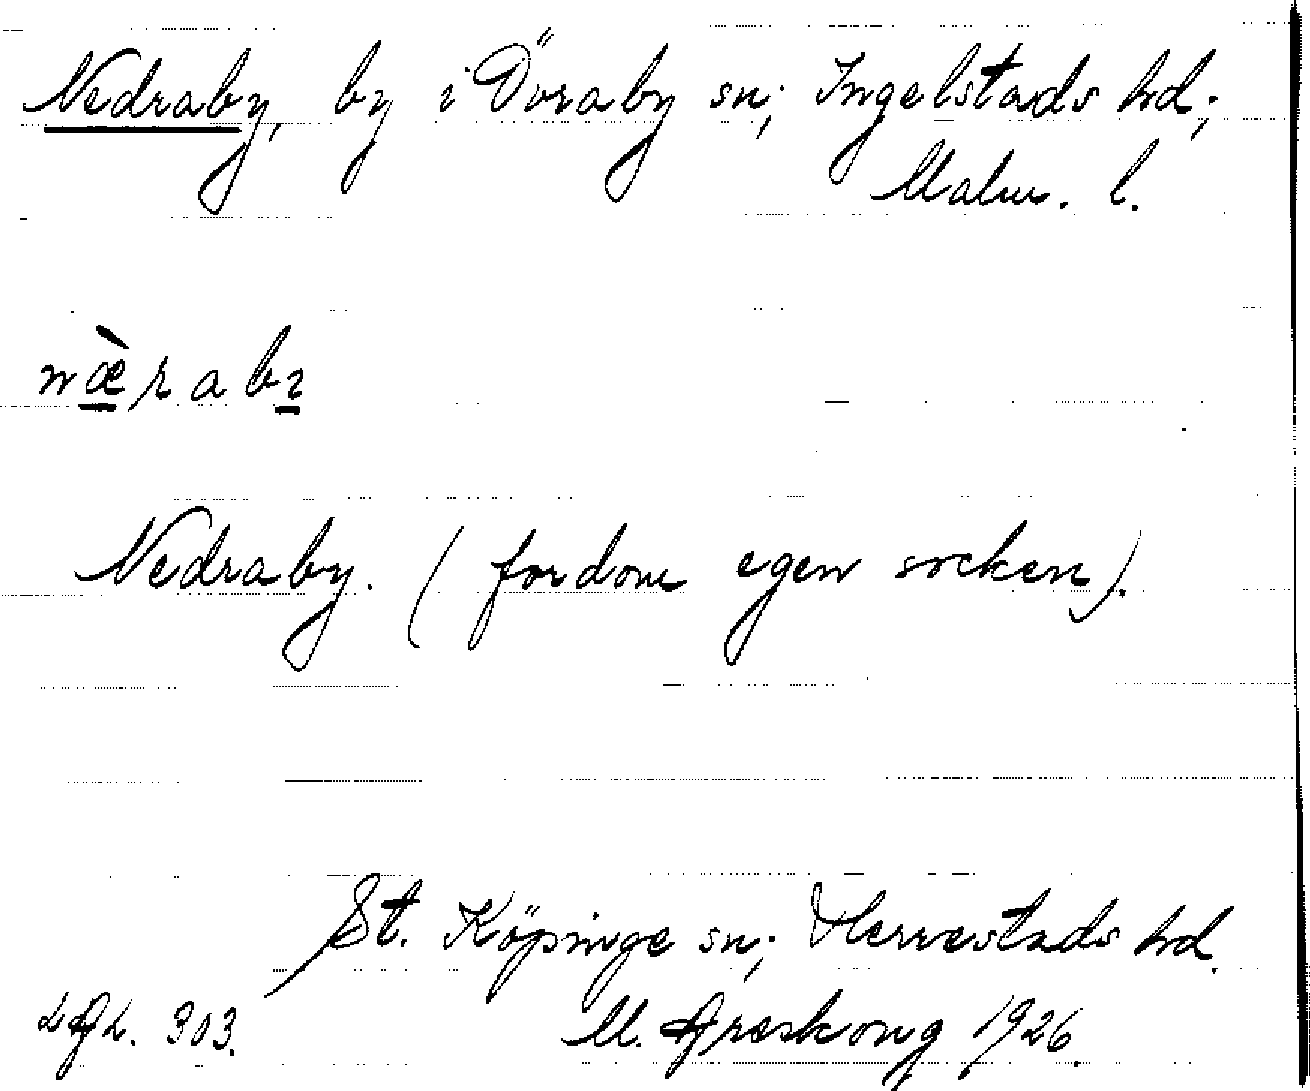 Nedraby, by i Övraby sn; Ingelstads hd;
Malm. l.
næ̀rabı
Nedraby. (fordom egen socken).
St. Köpinge sn; Herrestads hd.
M. Areskoug 1926.
LAL. 303.